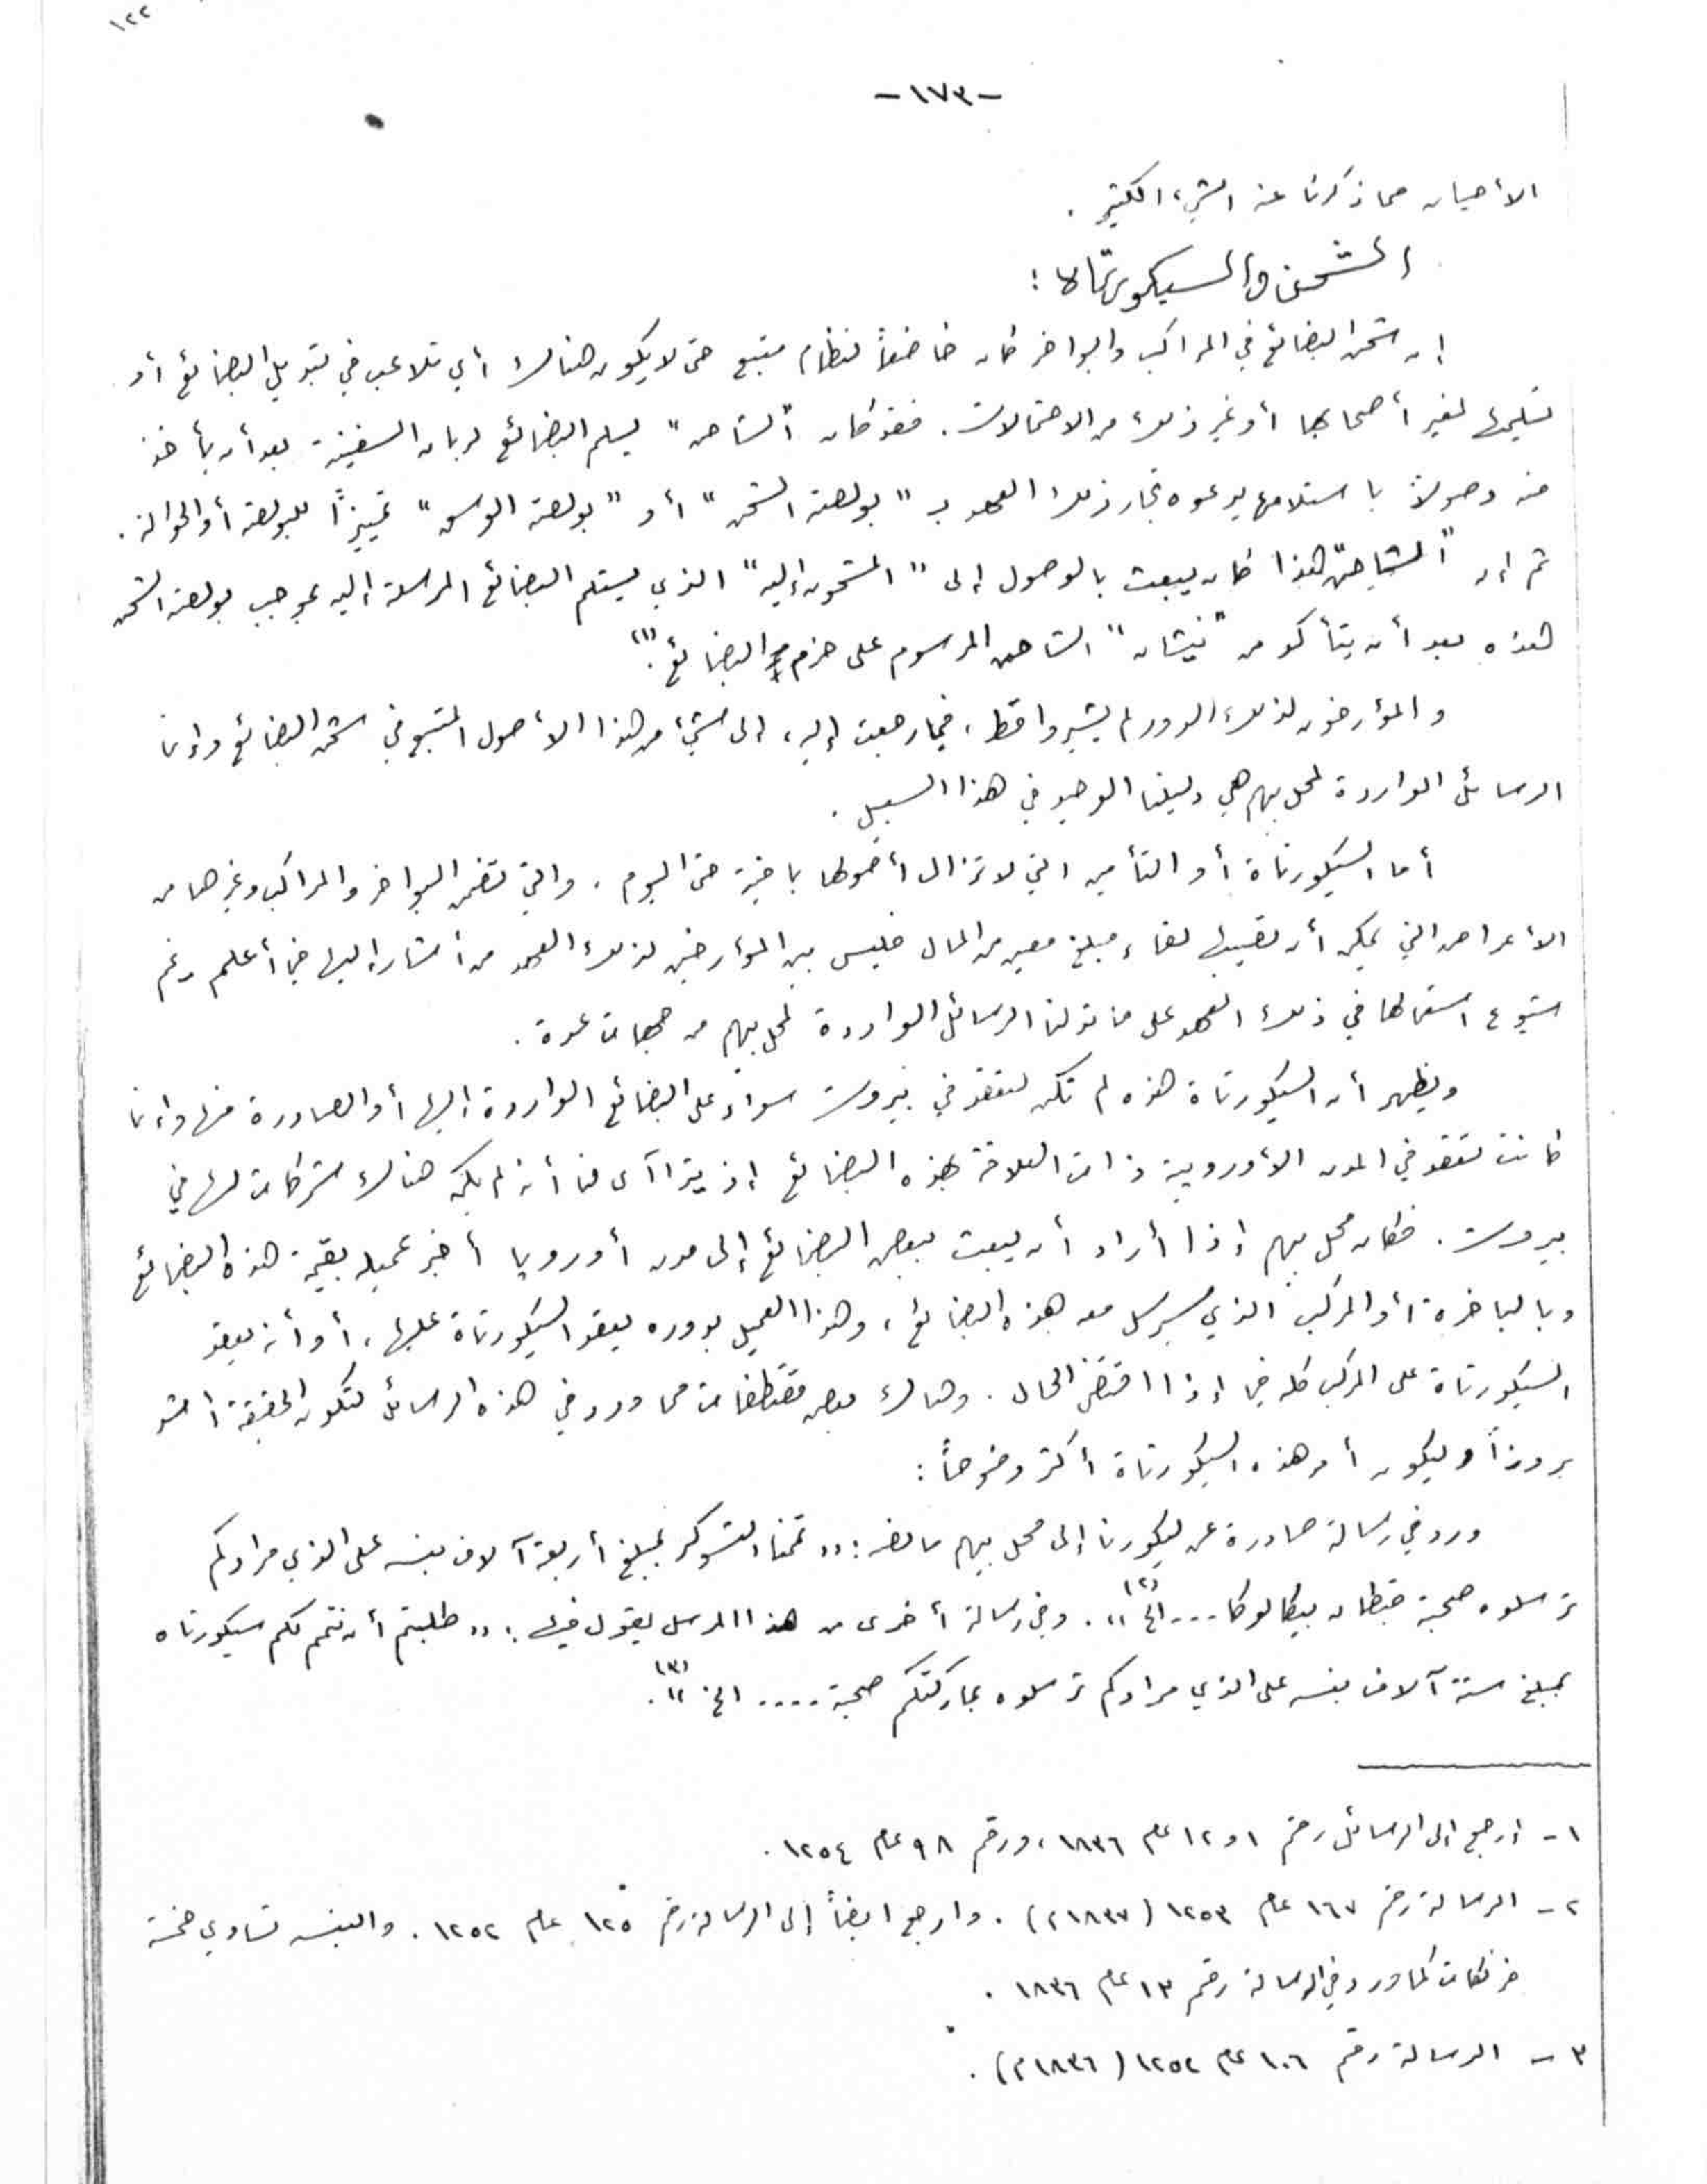 ١٢٢
-١٧٣-
الأحيان مما ذكرنا عنه الشيء الكثير .
الشحن والسيكورتاه :
إن شحن البضائع في المراكب والبواخر كان خاضعاً لنظام متبع حتى لا يكون هنالك أي تلاعب في تبديل البضائع أو
تسليمها لغير أصحابها أو غير ذلك من الاحتمالات . فقد كان "الشاحن" يسلم البضائع لربان السفينة بعد أن يأخذ
منه وصولاً باستلامها يدعوه تجار ذلك العهد بـ "بولصة الشحن" أو "بولصة الوسق" تمييزاً للبولصة أو الحوالة .
ثم إن "الشاحن" هذا كان يبعث بالوصول إلى "المشحون إليه" الذي يستلم البضائع المرسلة إليه بموجب بولصة الشحن
هذه بعد أن يتأكد من "نيشان" الشاحن المرسوم على حزم البضائع .(١)
والمؤرخون لذلك الدور لم يشيروا قط ، فيما رجعت إليه ، إلى شيء من هذا الأصول المتبع في شحن البضائع وإنما
الرسائل الواردة لمحل بيهم هي دليلنا الوحيد في هذا السبيل .
أما السيكورتاة أو التأمين التي لا تزال أصولها باقية حتى اليوم . والتي تضمن البواخر والمراكب وغيرها من
الأعراض التي يمكن أن تصيبها لقاء مبلغ معين من المال فليس بين المؤرخين لذلك العهد من أشار إليها فيما أعلم رغم
شيوع استعمالها في ذلك العهد على ما تدلنا الرسائل الواردة لمحل بيهم من جهات عدة .
ويظهر أن السيكورتاة هذه لم تكن لتعقد في بيروت سواء على البضائع الواردة إليها أو الصادرة منها وإنما
كانت تعقد في المدن الأوروبية ذات العلاقة بهذه البضائع إذ يتراآى لنا أنه لم يكن هنالك شركات لها في
بيروت . فكان محل بيهم إذا أراد أن يبعث ببعض البضائع إلى مدن أوروبا أخبر عميله بقيمة هذه البضائع
وبالباخرة أو المركب الذي سيرسل معه هذه البضائع ، وهذا العميل بدوره يعقد السيكورتاة عليها ، أو أنه يعقد
السيكورتاة على المركب كله فيما إذا اقتضى الحال . وهنالك بعض مقتطفات مما ورد في هذه الرسائل لتكون الحقيقة أشد
بروزاً وليكون أمر هذه السيكورتاة أكثر وضوحاً :
ورد في رسالة صادرة عن ليكورنا إلى محل بيهم ما نصه : «تممنا لكم بمبلغ أربعة آلاف بنسه على الذي مرادكم
ترسلوه صحبة قبطان بيكالوكا ... الخ» (٢). وفي رسالة أخرى من هذا المرسل يقول فيها : «طلبتم أن نتمم لكم سيكورتاه
بمبلغ ستة آلاف بنسه على الذي مرادكم ترسلوه بماركتكم صحبة .... الخ» (٣).
١ - إرجع إلى الرسائل رقم ١ و ١٢ عام ١٨٣٦ ، ورقم ٩٨ عام ١٢٥٤ .
٢ - الرسالة رقم ١٦٧ عام ١٢٥٣ (١٨٣٧م) . وارجع ايضاً إلى الرسالة رقم ١٢٥ عام ١٢٥٢ . والبنسه تساوي خمسة
فرنكات كما ورد في الرسالة رقم ١٣ عام ١٨٣٦ .
٣ - الرسالة رقم ١٠٦ عام ١٢٥٢ (١٨٣٦م) .